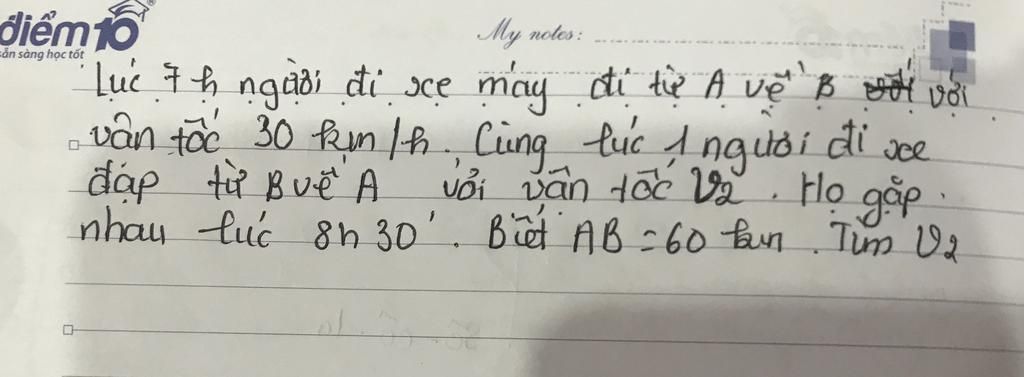 điểm 10
sẵn sàng học tốt
My notes:
Lúc 7 h người đi xe máy đi từ A về B với
vận tốc 30 km/h. Cùng lúc 1 người đi xe
đáp từ B về A với vận tốc V2. Họ gặp
nhau lúc 8h 30'. Biết AB = 60 km. Tìm V2